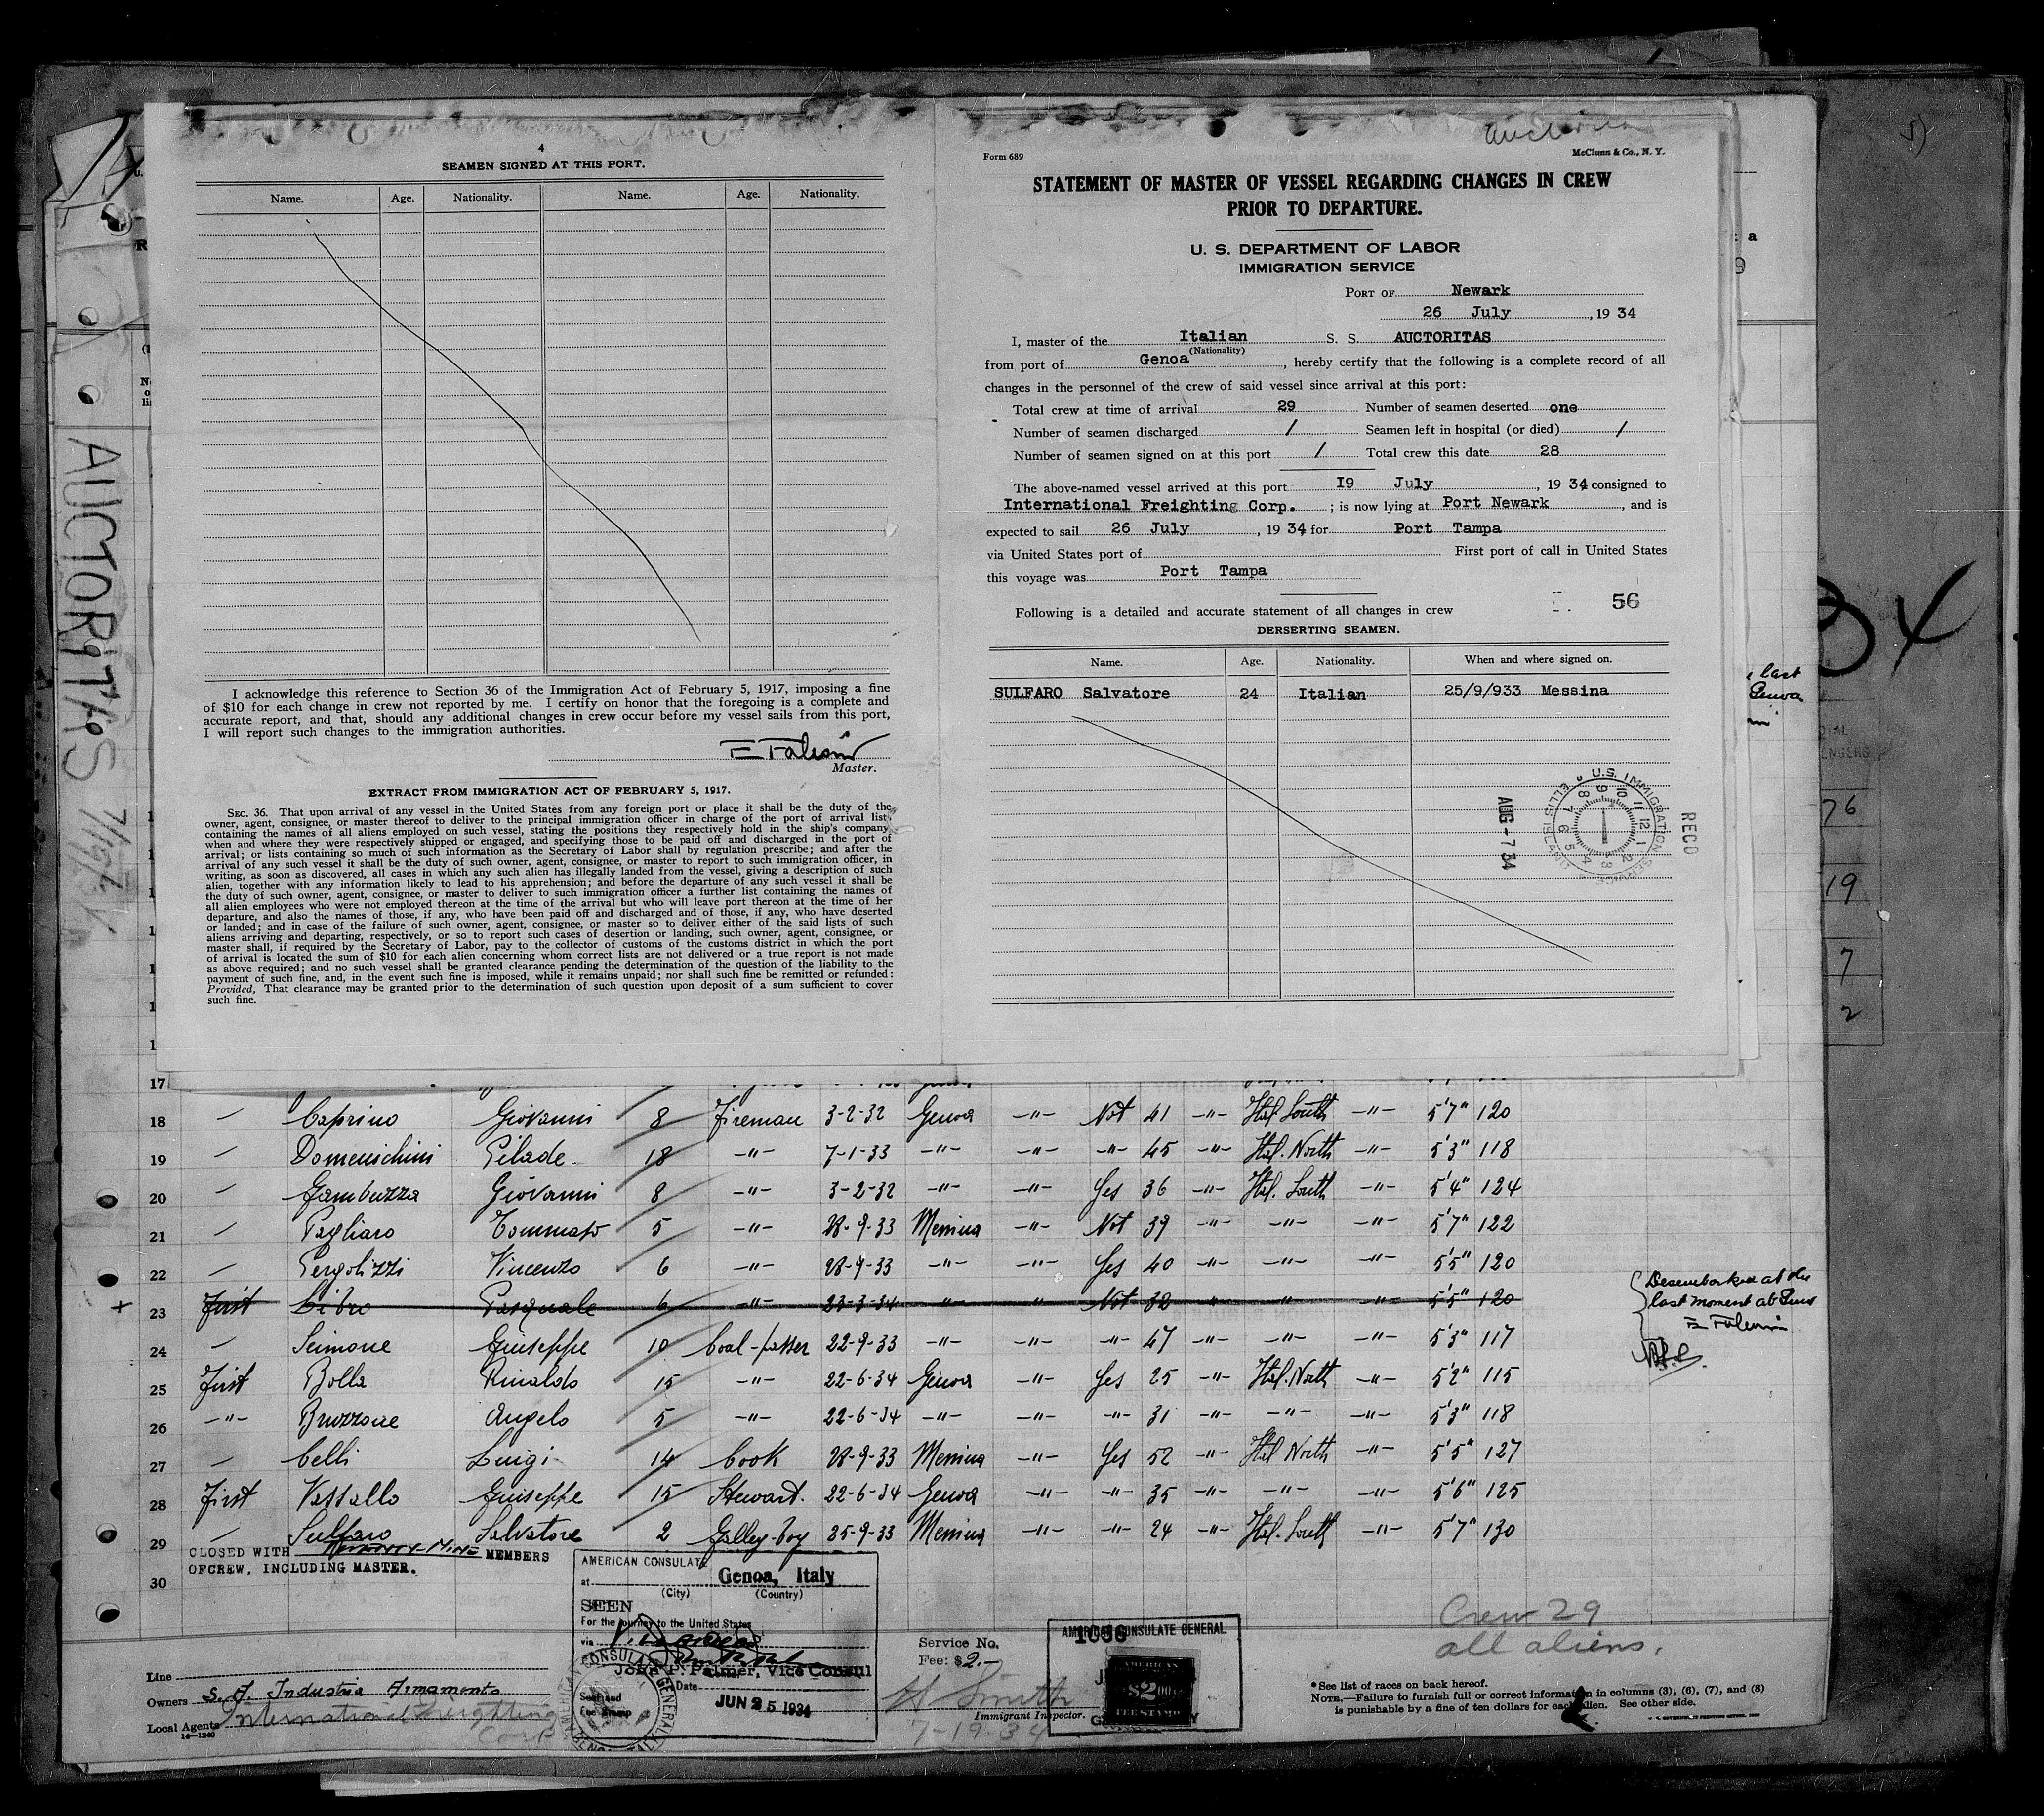 4
SEAMEN SIGNED AT THIS PORT.
Name. Age. Nationality. Name. Age. Nationality.
I acknowledge this reference to Section 36 of the Immigration Act of February 5, 1917, imposing a fine
of $10 for each change in crew not reported by me. I certify on honor that the foregoing is a complete and
accurate report, and that, should any additional changes in crew occur before my vessel sails from this port,
I will report such changes to the immigration authorities.
Master.
EXTRACT FROM IMMIGRATION ACT OF FEBRUARY 5, 1917.
SEC. 36. That upon arrival of any vessel in the United States from any foreign port or place it shall be the duty of the
owner, agent, consignee, or master thereof to deliver to the principal immigration officer in charge of the port of arrival list
containing the names of all aliens employed on such vessel, stating the positions they respectively hold in the ship's company
when and where they were respectively shipped or engaged, and specifying those to be paid off and discharged in the port of
arrival; or lists containing so much of such information as the Secretary of Labor shall by regulation prescribe; and after the
arrival of any such vessel it shall be the duty of such owner, agent, consignee, or master to report to such immigration officer, in
writing, as soon as discovered, all cases in which any such alien has illegally landed from the vessel, giving a description of such
alien, together with any information likely to lead to his apprehension; and before the departure of any such vessel it shall be
the duty of such owner, agent, consignee, or master to deliver to such immigration officer a further list containing the names of
all alien employees who were not employed thereon at the time of the arrival but who will leave port thereon at the time of her
departure, and also the names of those, if any, who have been paid off and discharged and of those, if any, who have deserted
or landed; and in case of the failure of such owner, agent, consignee, or master so to deliver either of the said lists of such
aliens arriving and departing, respectively, or so to report such cases of desertion or landing, such owner, agent, consignee, or
master shall, if required by the Secretary of Labor, pay to the collector of customs of the customs district in which the port
of arrival is located the sum of $10 for each alien concerning whom correct lists are not delivered or a true report is not made
as above required; and no such vessel shall be granted clearance pending the determination of the question of the liability to the
payment of such fine, and, in the event such fine is imposed, while it remains unpaid; nor shall such fine be remitted or refunded:
Provided, That clearance may be granted prior to the determination of such question upon deposit of a sum sufficient to cover
such fine.
Form 689
McClunn & Co., N. Y.
STATEMENT OF MASTER OF VESSEL REGARDING CHANGES IN CREW
PRIOR TO DEPARTURE.
U. S. DEPARTMENT OF LABOR
IMMIGRATION SERVICE
PORT OF Newark
26 July, 1934
I, master of the Italian S. S. AUCTORITAS
(Nationality)
from port of Genoa, hereby certify that the following is a complete record of all
changes in the personnel of the crew of said vessel since arrival at this port:
Total crew at time of arrival 29 Number of seamen deserted one
Number of seamen discharged / Seamen left in hospital (or died) /
Number of seamen signed on at this port / Total crew this date 28
The above-named vessel arrived at this port I9 July, 1934 consigned to
International Freighting Corp. ; is now lying at Port Newark, and is
expected to sail 26 July, 1934 for Port Tampa
via United States port of First port of call in United States
this voyage was Port Tampa
56
Following is a detailed and accurate statement of all changes in crew
DERSERTING SEAMEN.
Name. Age. Nationality. When and where signed on.
SULFARO Salvatore 24 Italian 25/9/933 Messina
RECD
U.S. IMMIGRATION SERVICE ELLIS ISLAND
AUG -7 34
AUCTORITAS 7/19/34
17
18 Caprino Giovanni 8 Fireman 3-2-32 Genoa -"- Not 41 -"- Ital South -"- 5'7" 120
19 Domenichini Pilade 18 -"- 7-1-33 -"- -"- -"- 45 -"- Ital. North -"- 5'3" 118
20 Gambuzza Giovanni 8 -"- 3-2-32 -"- -"- Yes 36 -"- Ital. South -"- 5'4" 124
21 Pagliaro Tommaso 5 -"- 28-9-33 Messina -"- Not 39 -"- -"- -"- 5'7" 122
22 Pergolizzi Vincenzo 6 -"- 28-9-33 -"- -"- Yes 40 -"- -"- -"- 5'5" 120
23 First Libro Pasquale 6 -"- 23-3-34 " " Not 32 " " -"- 5'5" 120
Desembarked at the
last moment at
24 Scimone Giuseppe 10 Coal-passer 22-9-33 -"- -"- -"- 47 -"- -"- -"- 5'3" 117
25 First Bolla Rinaldo 15 -"- 22-6-34 Genoa -"- Yes 25 -"- Ital. North -"- 5'2" 115
26 -"- Bruzzone Angelo 5 -"- 22-6-34 -"- -"- -"- 31 -"- -"- -"- 5'3" 118
27 Celli Luigi 14 Cook 28-9-33 Messina -"- Yes 52 -"- Ital North -"- 5'5" 127
28 First Vassallo Giuseppe 15 Stewart. 22-6-34 Genoa -"- -"- 35 -"- -"- -"- 5'6" 125
29 Sulfaro Salvatore 2 Galley-boy 25-9-33 Messina -"- -"- 24 -"- Ital. South -"- 5'7" 130
CLOSED WITH TWENTY-NINE MEMBERS
OFCREW, INCLUDING MASTER.
30
AMERICAN CONSULATE
at Genoa, Italy
(City) (Country)
SEEN
For the journey to the United States
via
John P. Palmer, Vice Consul
Date JUN 25 1934
Service No. 1056
Fee: $2.-
AMERICAN CONSULATE GENERAL
AMERICAN
$2.00
FEE STAMP
H Smith
Immigrant Inspector.
7-19-34
Crew 29
all aliens.
Line
Owners S. A. Industria Armamento
Local Agents International Freighting
Corp
14—1240
*See list of races on back hereof.
NOTE.—Failure to furnish full or correct information in columns (3), (6), (7), and (8)
is punishable by a fine of ten dollars for each alien. See other side.
last
Genoa
76
19
7
2